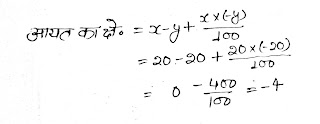 आयत का क्षे॰ = x-y+ x×(-y)/100
= 20-20+ 20×(-20)/100
= 0 -400/100 = -4